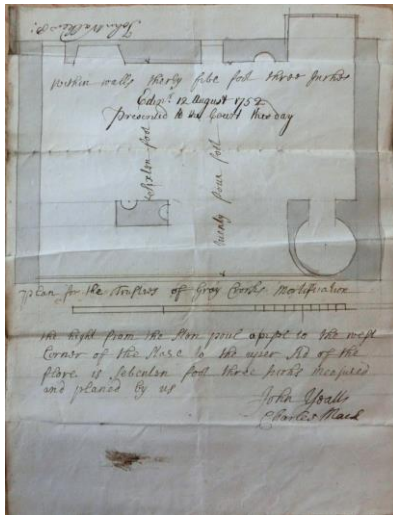 John Walker
within walls therty fibe foot three Inches
Edinr. 12 August 1752
presented to the Court this day
sixten foot
tuenty four foot
plan for the of Gray Crooks Mortification
the hight from the to the west
Corner of the to the uper sid of the
flore is sebenten foot three Inches mesured
and planed by us
John Yoall
Charles Mack